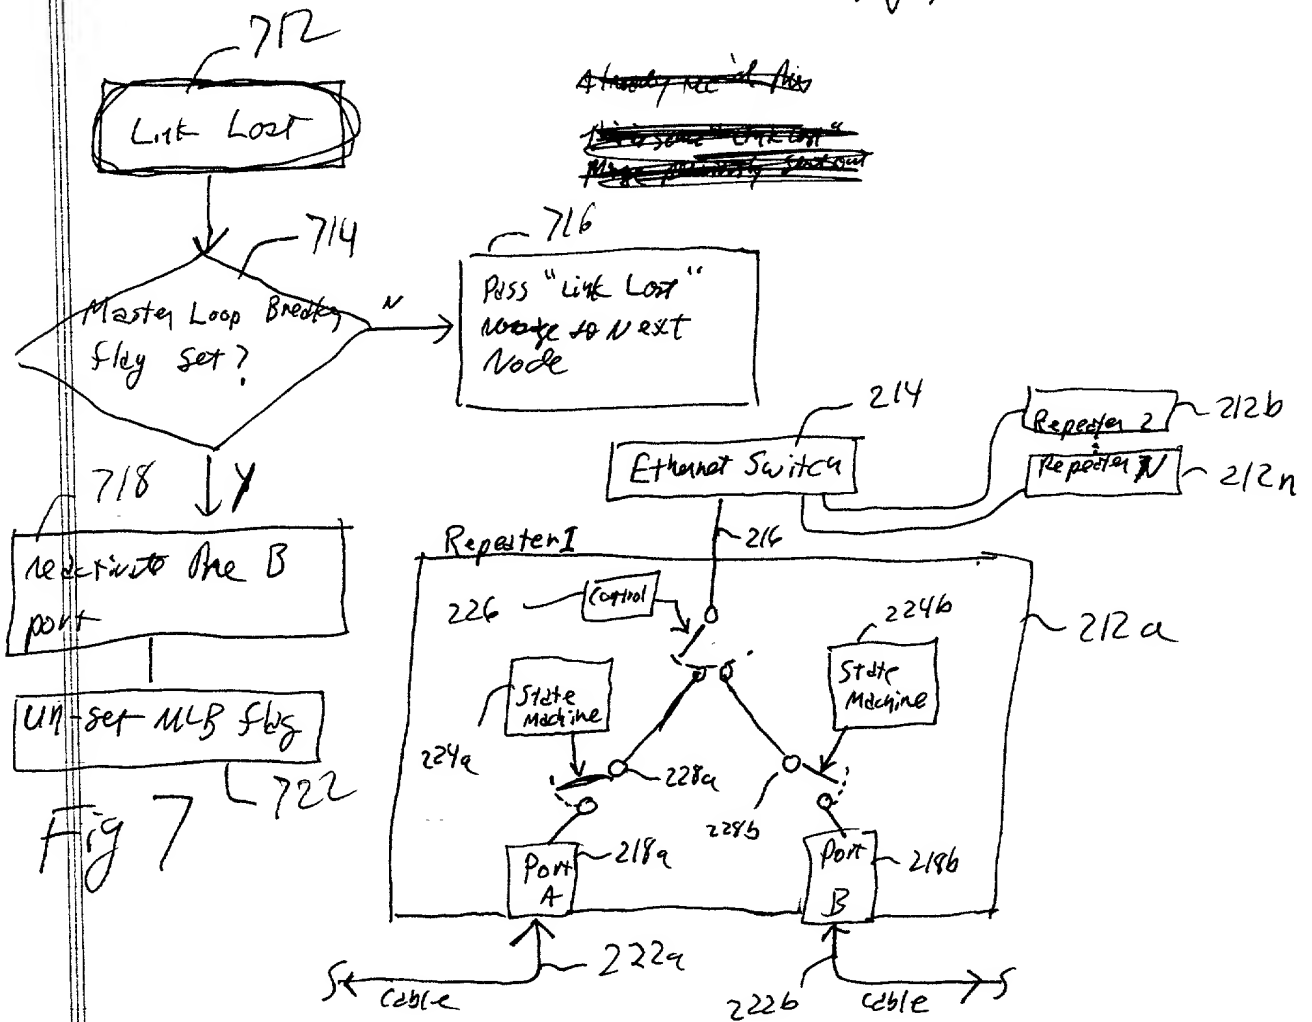 712
Link Lost
714
Master Loop Breaker
flag set?
N
716
Pass "Link Lost"
Message to Next
Node
Y
718
reactivate the B
port
un-set MLB flag
722
Fig 7
214
Ethernet Switch
Repeater 2
212b
Repeater N
212n
216
Repeater 1
226
Control
224b
State
Machine
212a
State
Machine
224a
228a
228b
Port
A
218a
Port
B
218b
222a
cable
222b
cable